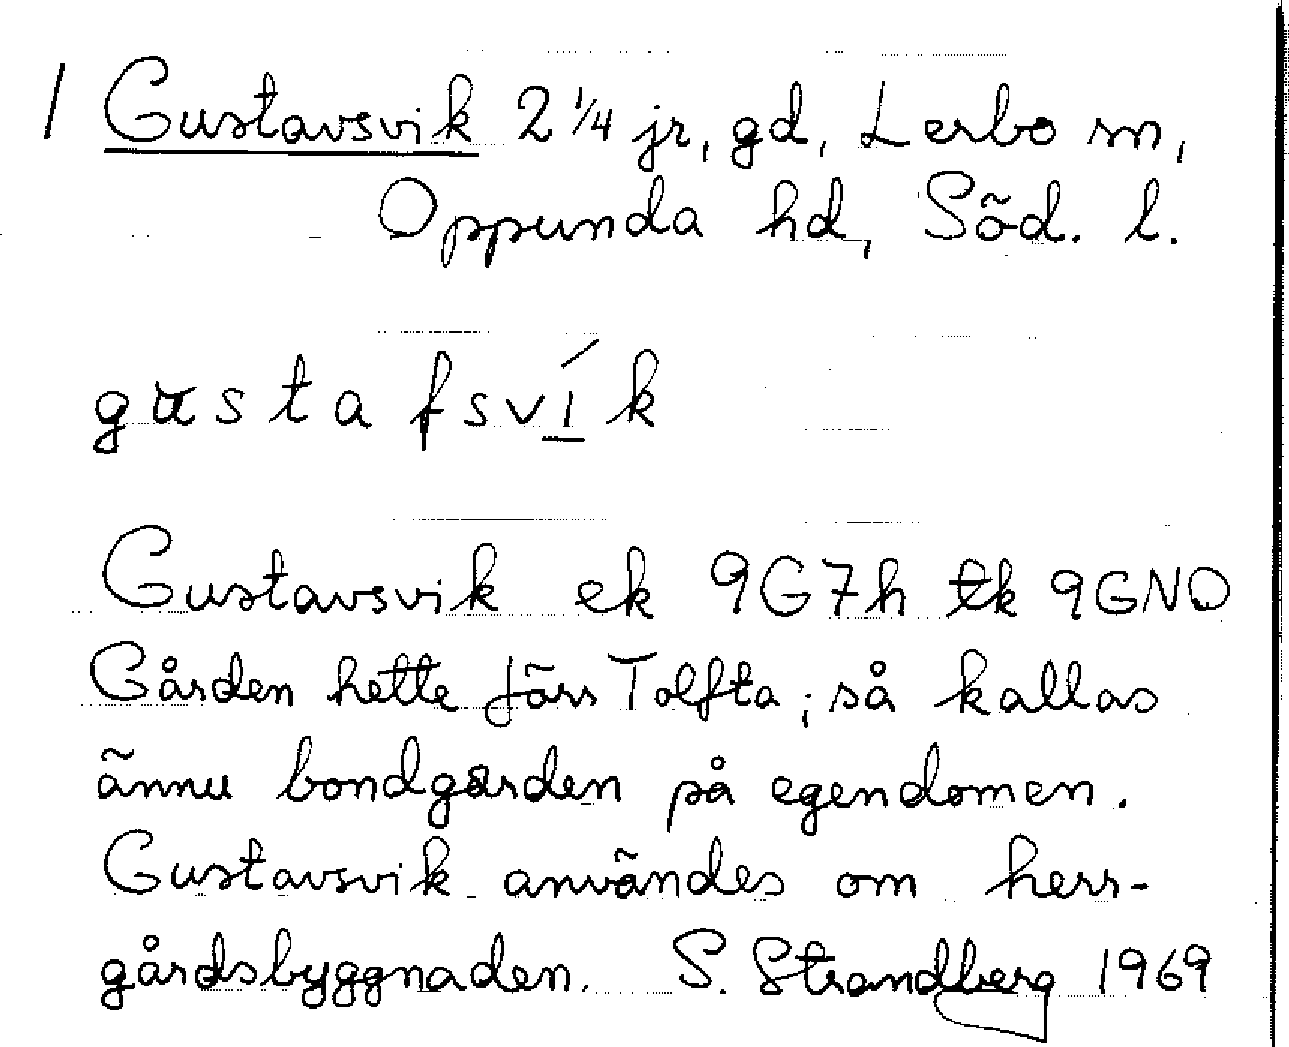 1 Gustavsvik 2 1/4 jr, gd, Lerbo sn,
Oppunda hd, Söd. l.
gustafsvík
Gustavsvik ek 9G7h tk 9GNO
Gården hette förr Tolfta; så kallas
ännu bondgården på egendomen.
Gustavsvik användes om herr-
gårdsbyggnaden. S. Strandberg 1969